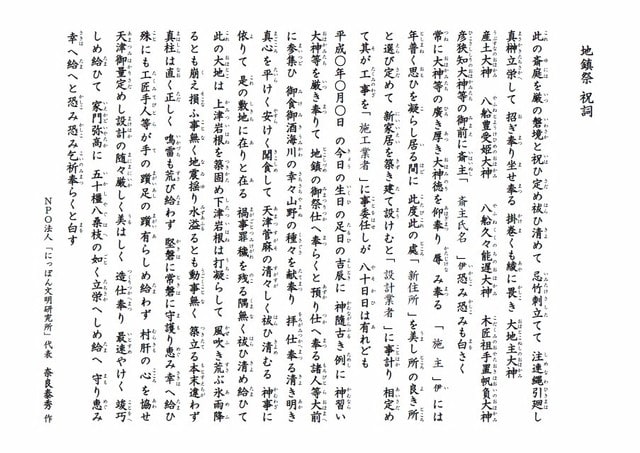 地鎮祭 祝詞
此の斎庭を厳の磐境と祝ひ定め祓ひ清めて 忌竹刺立てて 注連縄引廻し
真榊立栄して 招ぎ奉り坐せ奉る 掛巻くも綾に畏き 大地主大神
産土大神 八船豊受姫大神 八船久々能遅大神 木匠祖手置帆負大神
彦狭知大神等の御前に斎主「 斎主氏名 」伊恐み恐みも白さく
常に大神等の広き厚き大神徳を仰奉り 辱み奉る 「 施 主 」伊には
年普く思ひを凝らし居る間に 此度此の處「 新住所 」を美し所の良き所
と選び定めて 新家居を築き建て設けむと「 設計業者 」に事計り 相定め
て其が工事を「 施工業者 」に事委任しが 八十日日は有れども
平成〇年〇月〇日 の今日の生日の足日の吉辰に 神隨古き例に 神習い
大神等を厳き奉りて 地鎮の御祭仕へ奉らくと預り仕へ奉る諸人等大前
に参集ひ 御食御酒海川の幸々山野の種々を献奉り 拝仕奉る清き明き
真心を平けく安けく聞食して 天津菅麻の清々しく祓ひ清むる 神事に
依りて 是の敷地に在りと在る 禍事罪穢を残る隅無く祓ひ清め給ひて
此の大地は 上津岩根を築固め下津岩根は打凝らして 風吹き荒ぶ氷雨降
るとも崩え損ふ事無く地震揺り水溢るとも動事無く 築立る本末違わず
真柱は直く正しく 鳴雷も荒び給わず 堅磐に常磐に守護り恵み幸へ給ひ
殊にも工匠手人等が手の躓足の躓有らしめ給わず 村肝の心を協せ
天津御量定めし設計の随々厳しく美はしく 造仕奉り 最速やけく 竣巧
しめ給ひて 家門弥高に 五十橿八桑枝の如く立栄へしめ給へ 守り恵み
幸へ給へと恐み恐み乞祈奉らくと白す
NPO法人「にっぽん文明研究所」代表 奈良泰秀 作